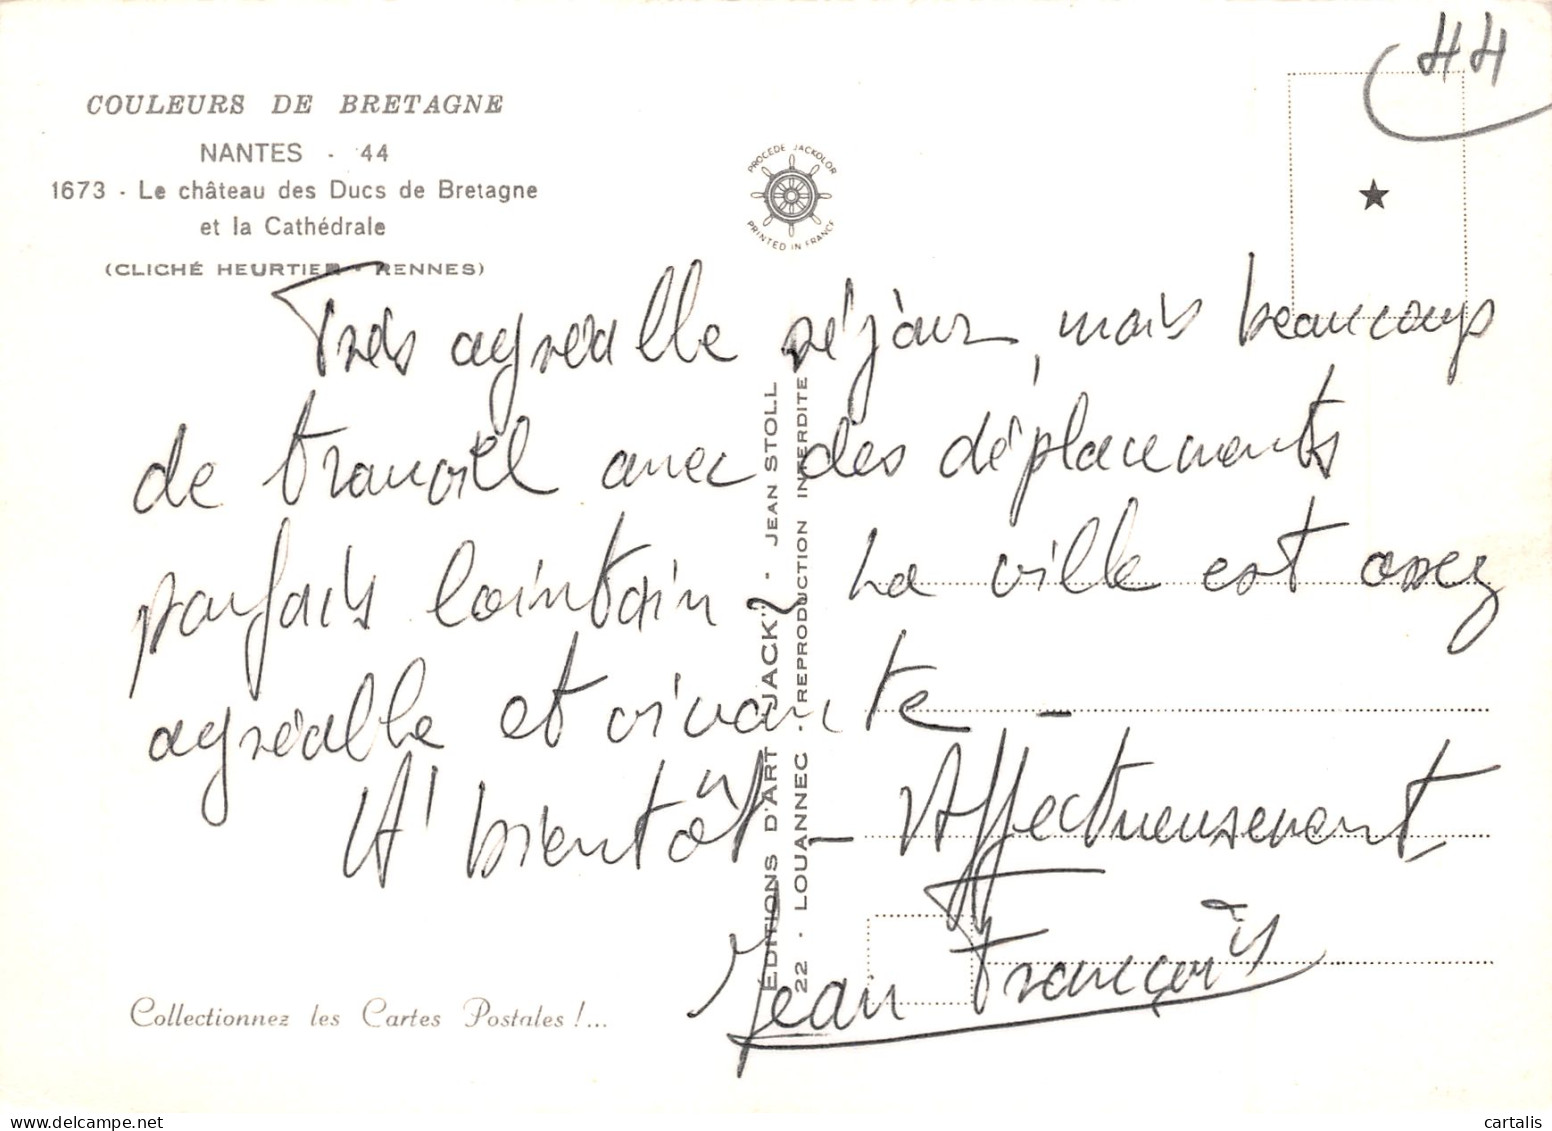 44
COULEURS DE BRETAGNE
NANTES - 44
1673 - Le château des Ducs de Bretagne
et la Cathédrale
(CLICHÉ HEURTIER - RENNES)
PROCÉDÉ JACKOLOR
PRINTED IN FRANCE
Très agréable séjour, mais beaucoup
de travail avec des déplacements
parfois lointain. La ville est assez
agréable et vivante -
A' bientôt - Affectueusement
Jean François
ÉDITIONS D'ART "JACK" - JEAN STOLL
22 - LOUANNEC - REPRODUCTION INTERDITE
Collectionnez les Cartes Postales !...
cartalis